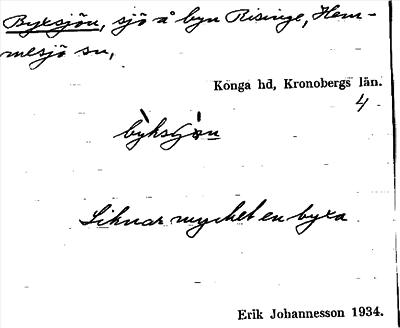 Byxsjön, sjö å byn Risinge, Hem-
mesjö sn,
Konga hd, Kronobergs län.
4.
Liknar mycket en byxa
Erik Johannesson 1934.